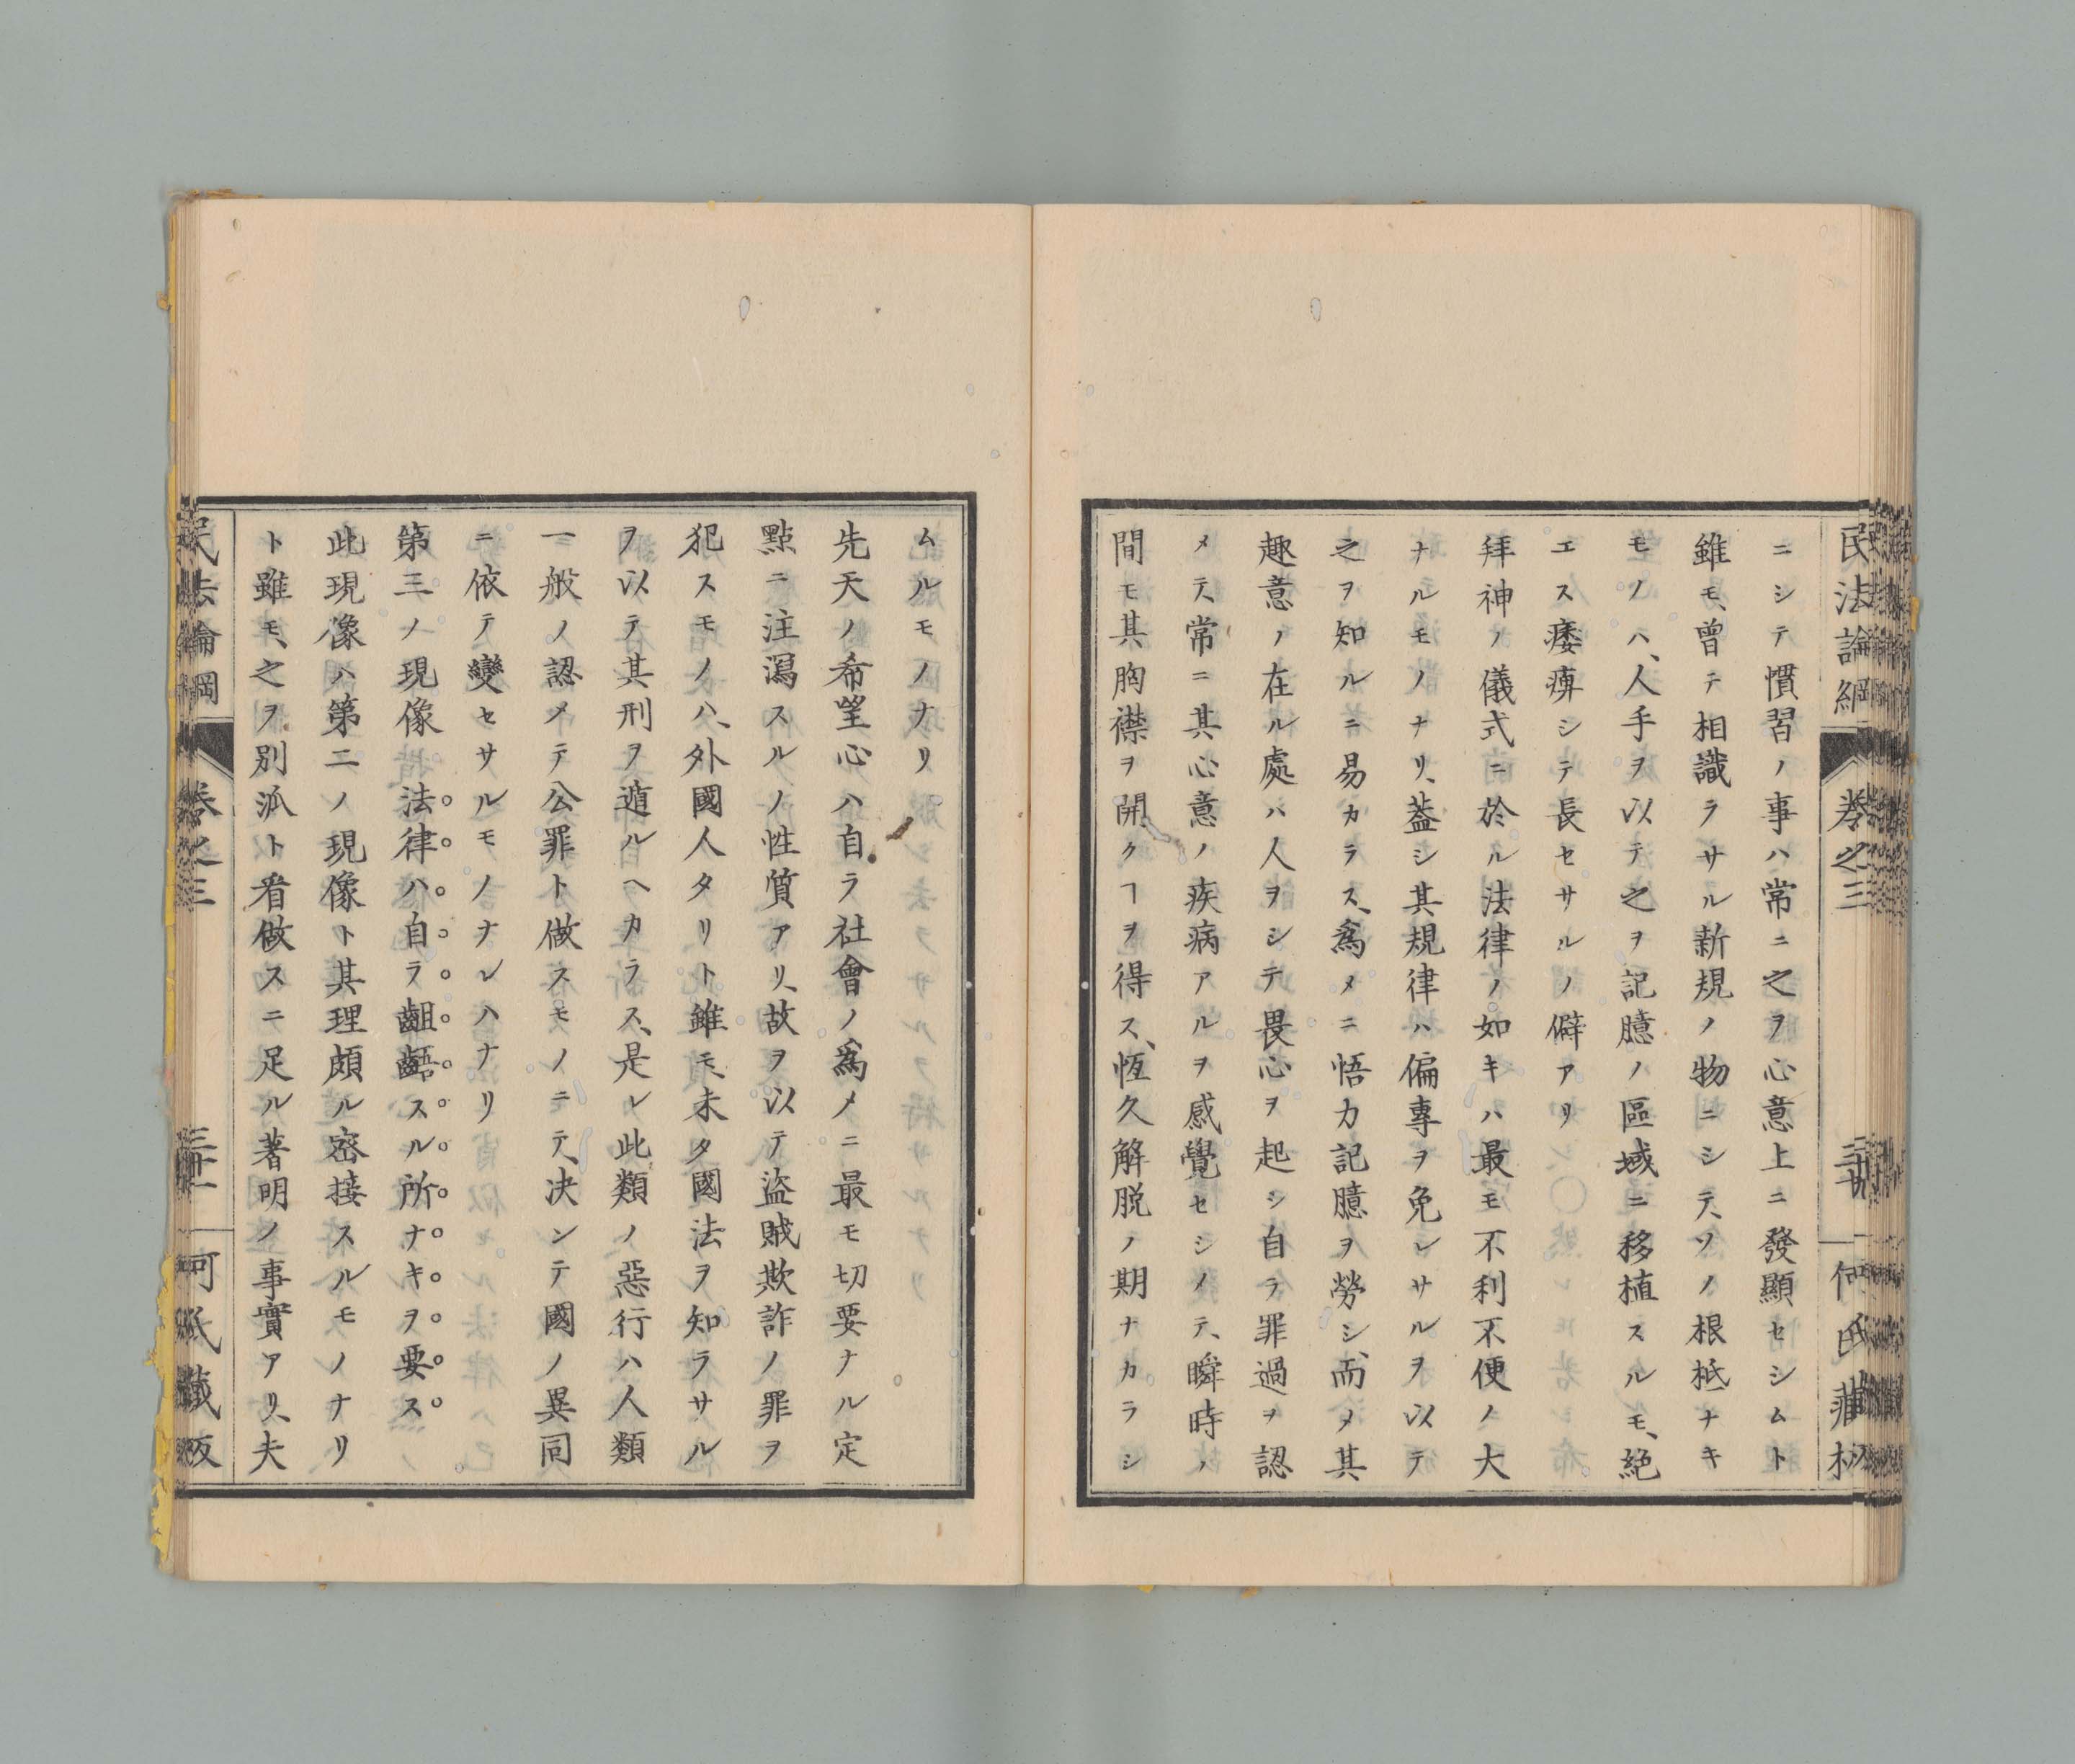 民法論綱 卷之三 三十 何氏藏板
ニシテ慣習ノ事ハ常ニ之ヲ心意上ニ發顯セシムト
雖モ、曾テ相識ラサル新規ノ物ニシテ、ソノ根柢ナキ
モノハ、人手ヲ以テ之ヲ記臆ノ區域ニ移植スルモ、絶
エス痿痺シテ長セサルノ僻アリ
拜神ノ儀式ニ於ル法律ノ如キハ最モ不利不便ノ大
ナルモノナリ、蓋シ其規律ハ偏專ヲ免レサルヲ以テ
之ヲ知ルニ易カラス、爲メニ悟力記臆ヲ勞シ、而メ其
趣意ノ在ル處ハ人ヲシテ畏心ヲ起シ自ラ罪過ヲ認
メテ、常ニ其心意ノ疾病アルヲ感覺セシノテ、瞬時ノ
間モ其胸襟ヲ開クヿヲ得ス、恆久解脱ノ期ナカラシ
ムルモノナリ
先天ノ希望心ハ自ラ社會ノ爲メニ最モ切要ナル定
點ニ注瀉スルノ性質アリ、故ヲ以テ盜賊欺詐ノ罪ヲ
犯スモノハ、外國人タリト雖モ、未タ國法ヲ知ラサル
ヲ以テ其刑ヲ遁ルヘカラス、是レ此類ノ惡行ハ人類
一般ノ認メテ公罪ト做スモノニテ、决ンテ國ノ異同
ニ依テ變セサルモノナレハナリ
第三ノ現像法律ハ自ラ齟齬スル所ナキヲ要ス
此現像ハ第二ノ現像ト其理頗ル密接スルモノナリ
ト雖モ、之ヲ別派ト看做スニ足ル著明ノ事實アリ、夫
民法論綱 卷之三 三十一 何氏藏板